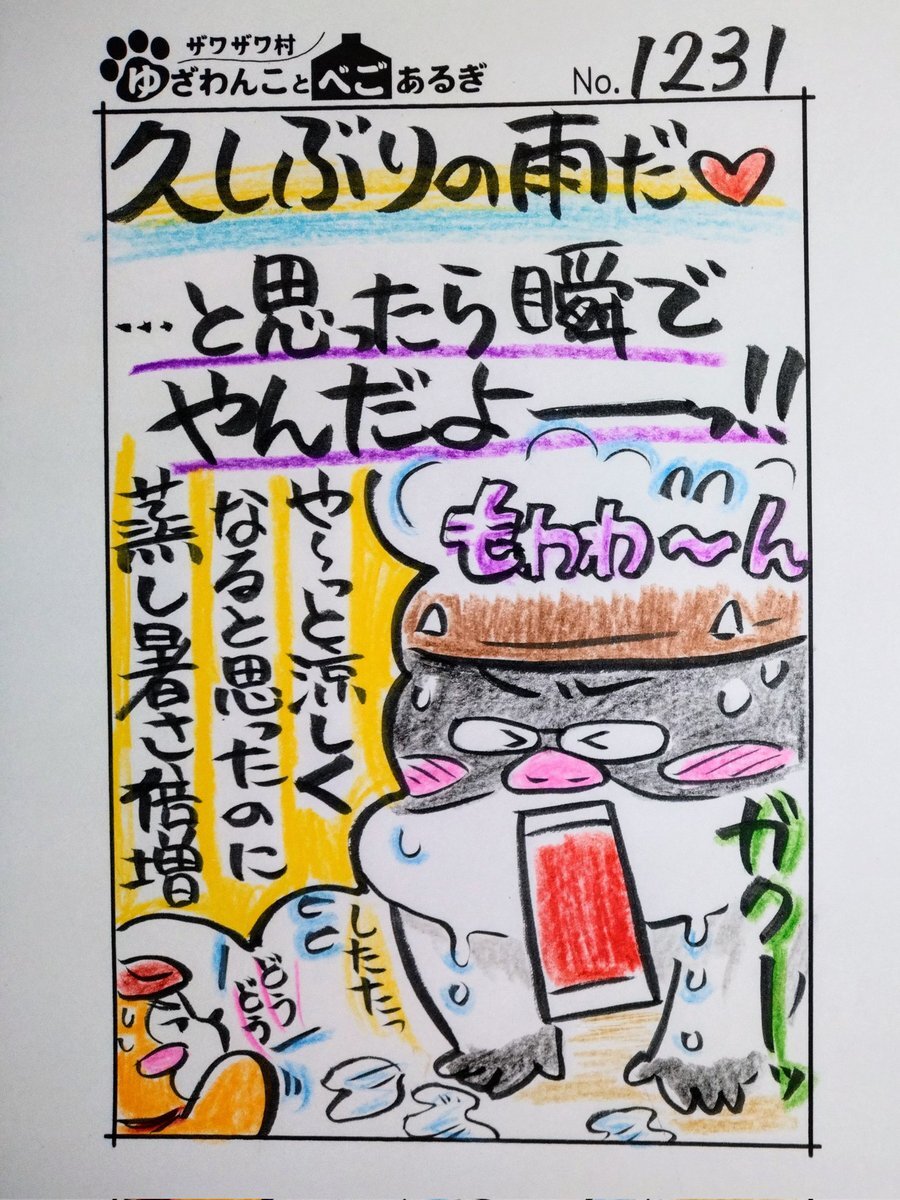 ザワザワ村
ゆざわんことべごあるぎ
No.1231
久しぶりの雨だ♥
…と思ったら瞬で
やんだよーっ!!
もわわ〜ん
や〜っと涼しく
なると思ったのに
蒸し暑さ倍増
ガクーッ
したたっ
どう
どう